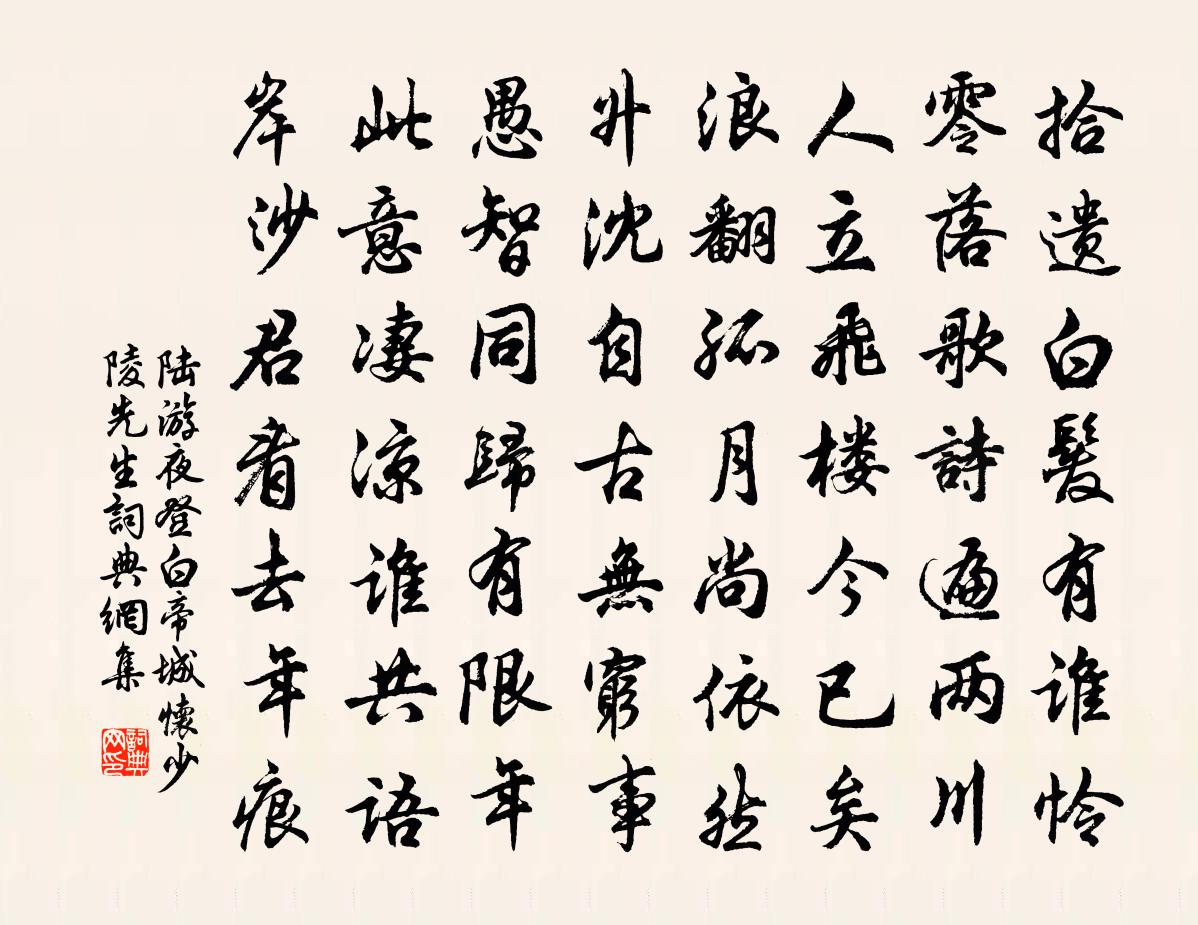 拾遗白髮有谁怜
零落歌詩遍两川
人立飛楼今已矣
浪翻孤月尚依然
升沈自古無窮事
愚智同歸有限年
此意凄凉谁共語
岸沙君看去年痕
陆游夜登白帝城懷少
陵先生詞典網集
詞典网印